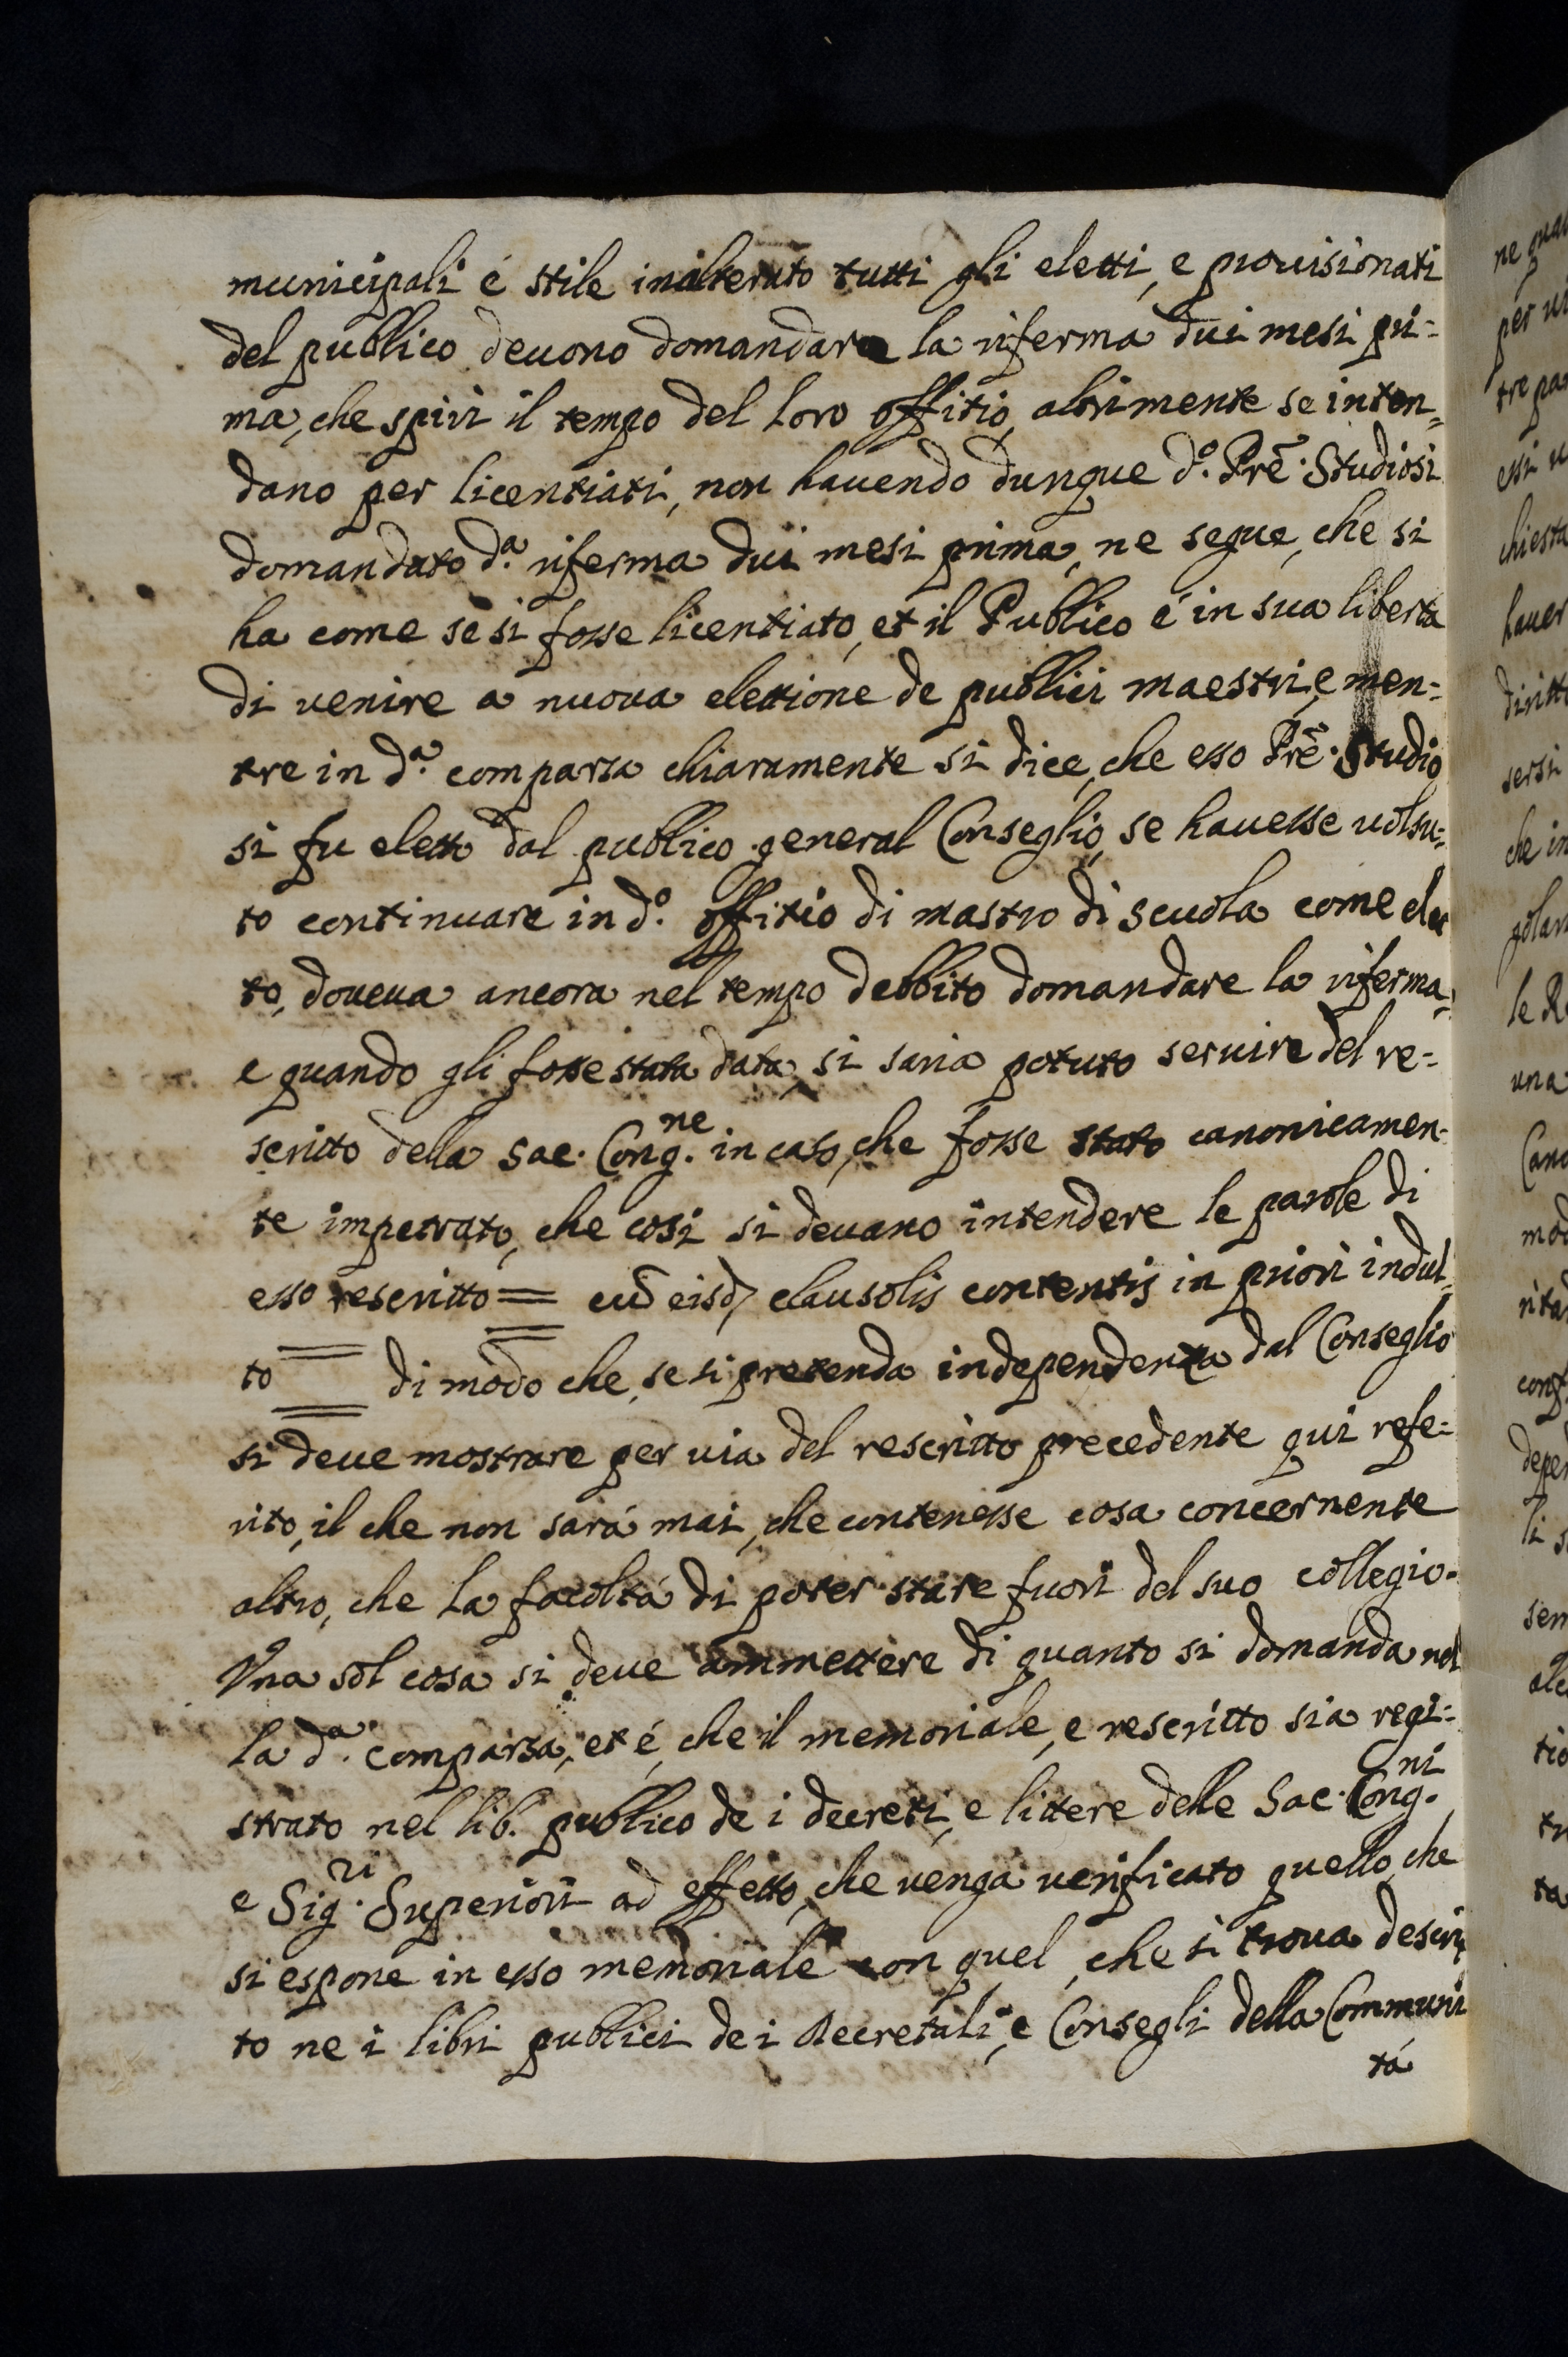 municipali é stile inalterato tutti gli eletti, e prouisionati
del publico deuono domandare la riferma dui mesi pri=
ma, che spiri il tempo del loro offitio, altrimente se inten=
dano per licentiati, non hauendo dunque d.º Prē. Studiosi
domandato d.ª riferma dui mesi prima, ne segue, che si
ha come se si fosse licentiato, et il Publico é in sua liberta
di venire a nuova elettione de publici maestri, e men=
tre in d.ª comparsa chiaramente si dice, che esso Prē. Studio
si fu eletto dal publico general Conseglio, se hauesse uolsu=
to continuare in d.º offitio di mastro di scuola come elet
to, doueua ancora nel tempo debbito domandare la riferma,
e quando gli fosse stata data, si saria potuto seruire del re=
scritto della Sac. Cong.ne in caso, che fosse stato canonicamen=
te impetrato, che cosi si deuano intendere le parole di
esso rescritto = cū eisd. clausolis contentis in priori indul=
to = di modo che, se si pretenda independenza dal Conseglio
si deue mostrare per uia del rescritto precedente qui refe=
rito, il che non sará mai, che contenesse cosa concernente
altro, che la facoltá di poter stare fuori del suo collegio.
Vna sol cosa si deue ammettere di quanto si domanda nel
la d.ª comparsa, et é, che il memoriale, e rescritto sia regi=
strato nel lib. publico de i decreti, e littere delle Sac. Cong.ni
e Sig.ri Superiori ad effetto, che uenga uerificato quello, che
si espone in esso memoriale con quel, che si troua descrit
to ne i libri publici de i Decretali, e Consegli della Communi
tá
ne
per
tre
essi
chiesta
hauer
diritt
sersi
che in
golar
le
una
Cano
mod
conf
depen
li
sem
tio
ta